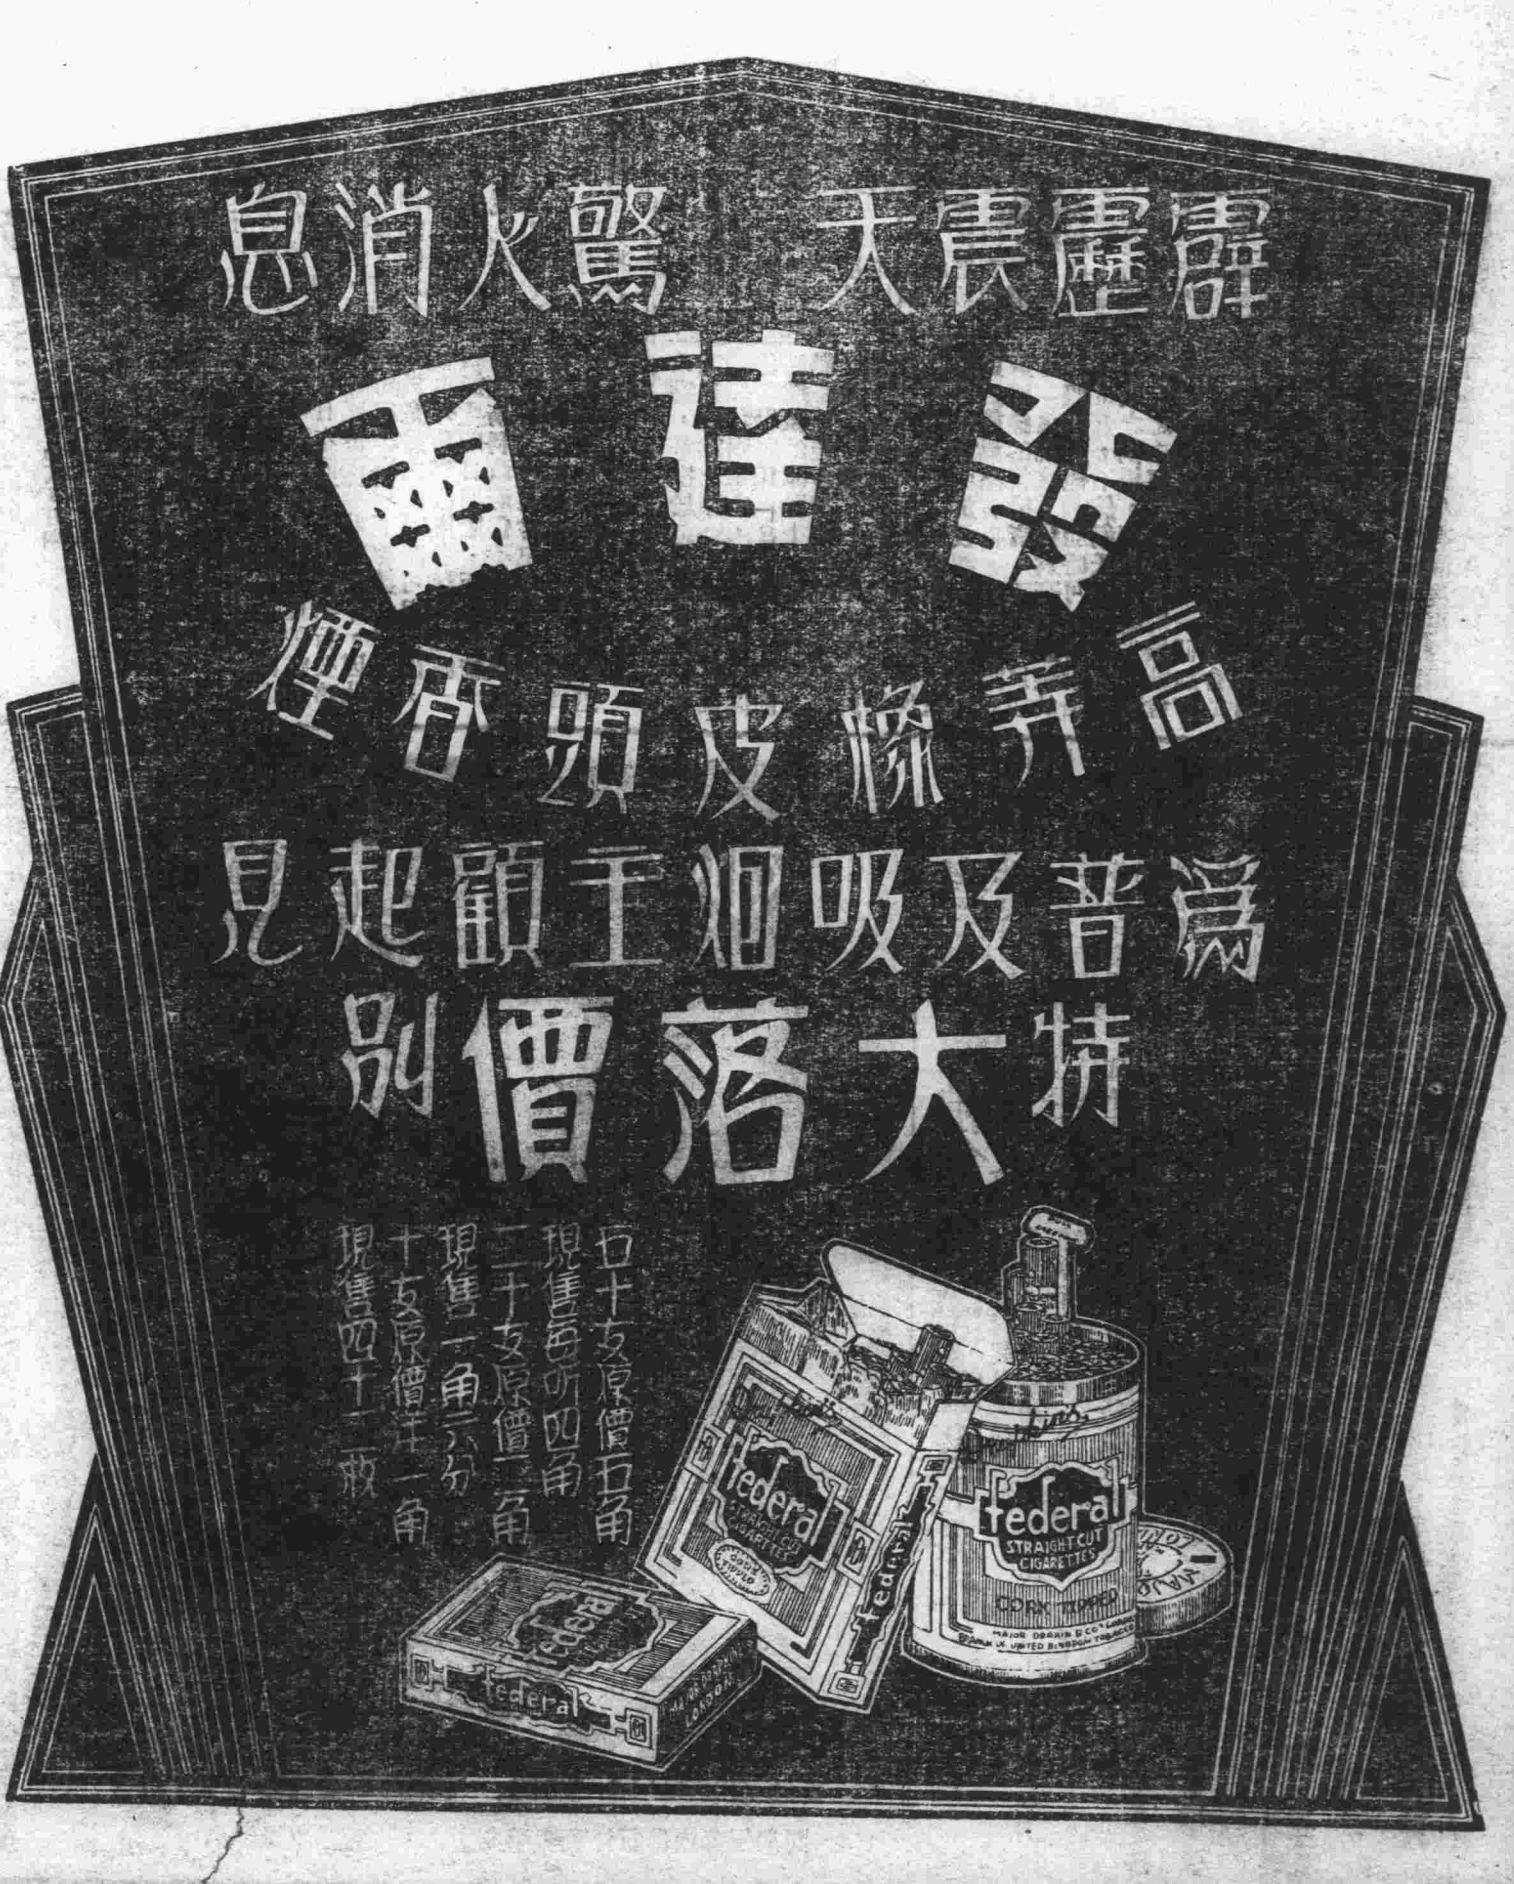 霹靂震天 驚人消息
發達爾
高等橡皮頭香煙
爲普及吸烟主顧起見
特大落價別
五十支原價五角
現售每听四角
二十支原價二角
現售一角六分
十支原價洋一角
現售四十二枚
federal
STRAIGHT CUT
CIGARETTES
CORK TIPPED
MAJOR DRAKIN & CO
federal
STRAIGHT CUT
CIGARETTES
federal
federal
federal
LONDON